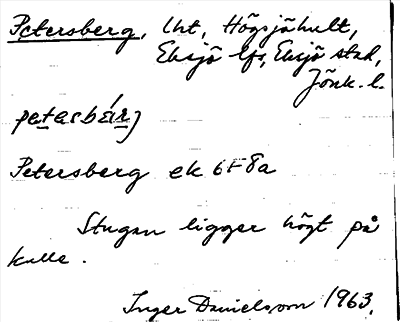 Petersberg, lht, Högsjöhult,
Eksjö lfs, Eksjö stad,
Jönk. l.
petasbärj
Petersberg ek 6f 8a
Stugan ligger högt på
kulle.
Inger Danielsson 1963.